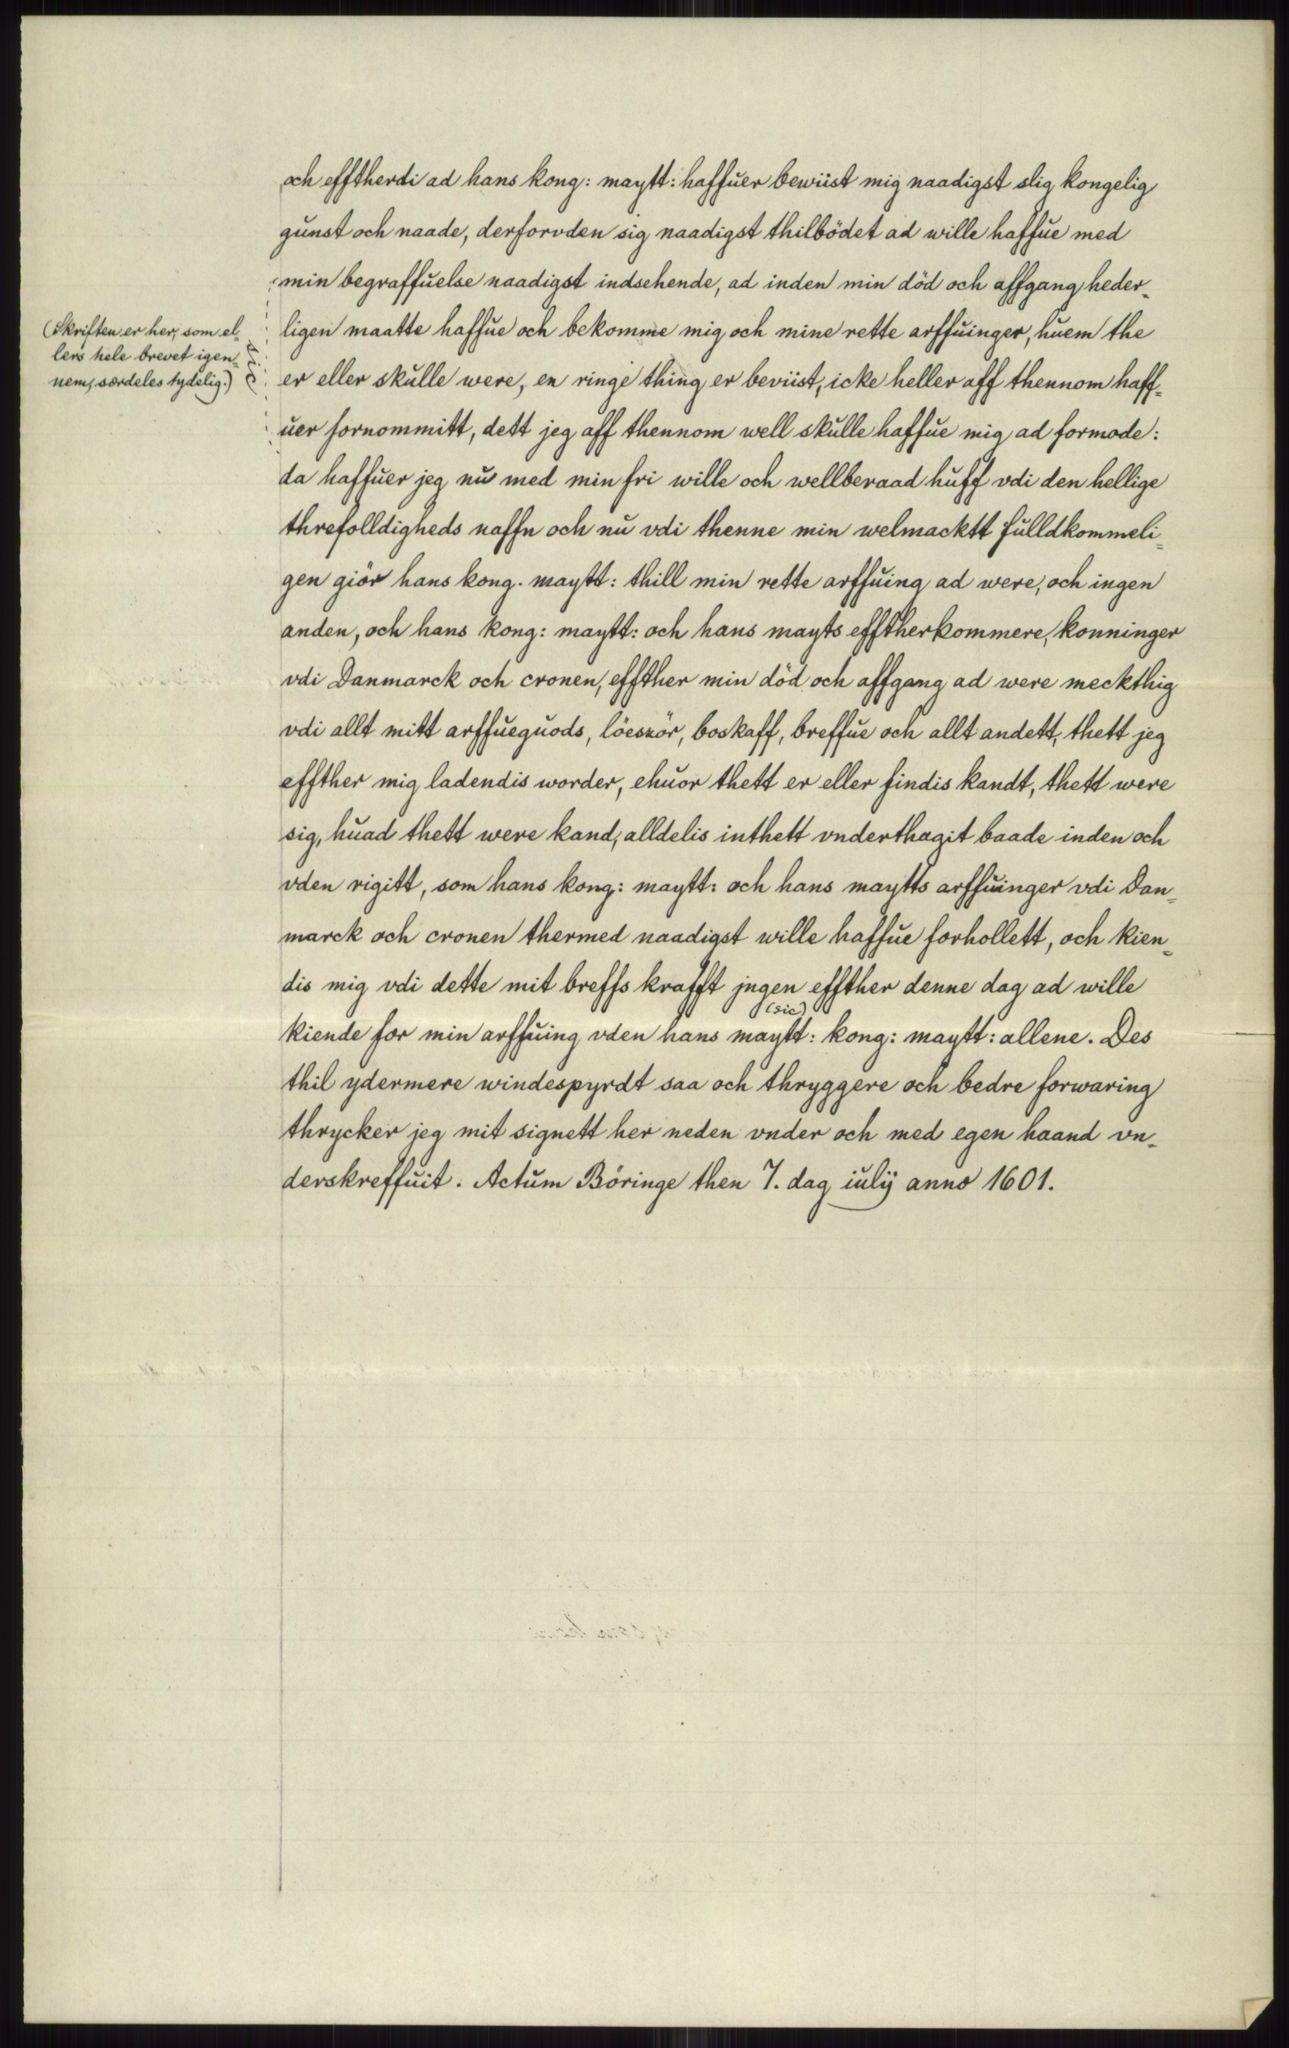 och efftherdi ad hans kong: maytt: haffuer bewiist mig naadigst slig kongelig
gunst och naade, derforvden sig naadigst thilbödet ad wille haffue med
min begraffuelse naadigst indsehende, ad inden min död och affgang heder-
(Skriften er her, som el-
lers hele brevet igen-
nem, særdeles tydelig.)
sic
ligen maatte haffue och bekomme mig och mine rette arffuinger, huem the
er eller skulle were, en ringe thing er beviist, icke heller aff thennom haff-
uer fornommitt, dett jeg aff thennom well skulle haffue mig ad formode:
da haffuer jeg nu med min fri wille och wellberaad huff vdi den hellige
threfolldigheds naffn och nu vdi thenne min welmacktt fulldkommeli-
gen giör hans kong. maytt: thill min rette arffuing ad were, och ingen
anden, och hans kong: maytt: och hans mayts efftherkommere, konninger
vdi Danmarck och cronen, effther min död och affgang ad were meckthig
vdi allt mitt arffueguods, löesör, boskaff, breffue och allt andett, thett jeg
effther mig ladendis worder, ehuor thett er eller findis kandt, thett were
sig, huad thett were kand, alldelis inthett vnderthagit baade inden och
vden rigitt, som hans kong: maytt: och hans maytts arffuinger vdi Dan-
marck och cronen thermed naadigst wille haffue forhollett, och kien-
dis mig vdi dette mit breffs krafft jngen effther denne dag ad wille
(sic)
kiende for min arffuing vden hans maytt: kong: maytt: allene. Des
thil ydermere windespyrdt saa och thryggere och bedre forwaring
thrycker jeg mit signett her neden vnder och med egen haand vn-
derskreffuit. Actum Böringe then 7. dag iulij anno 1601.